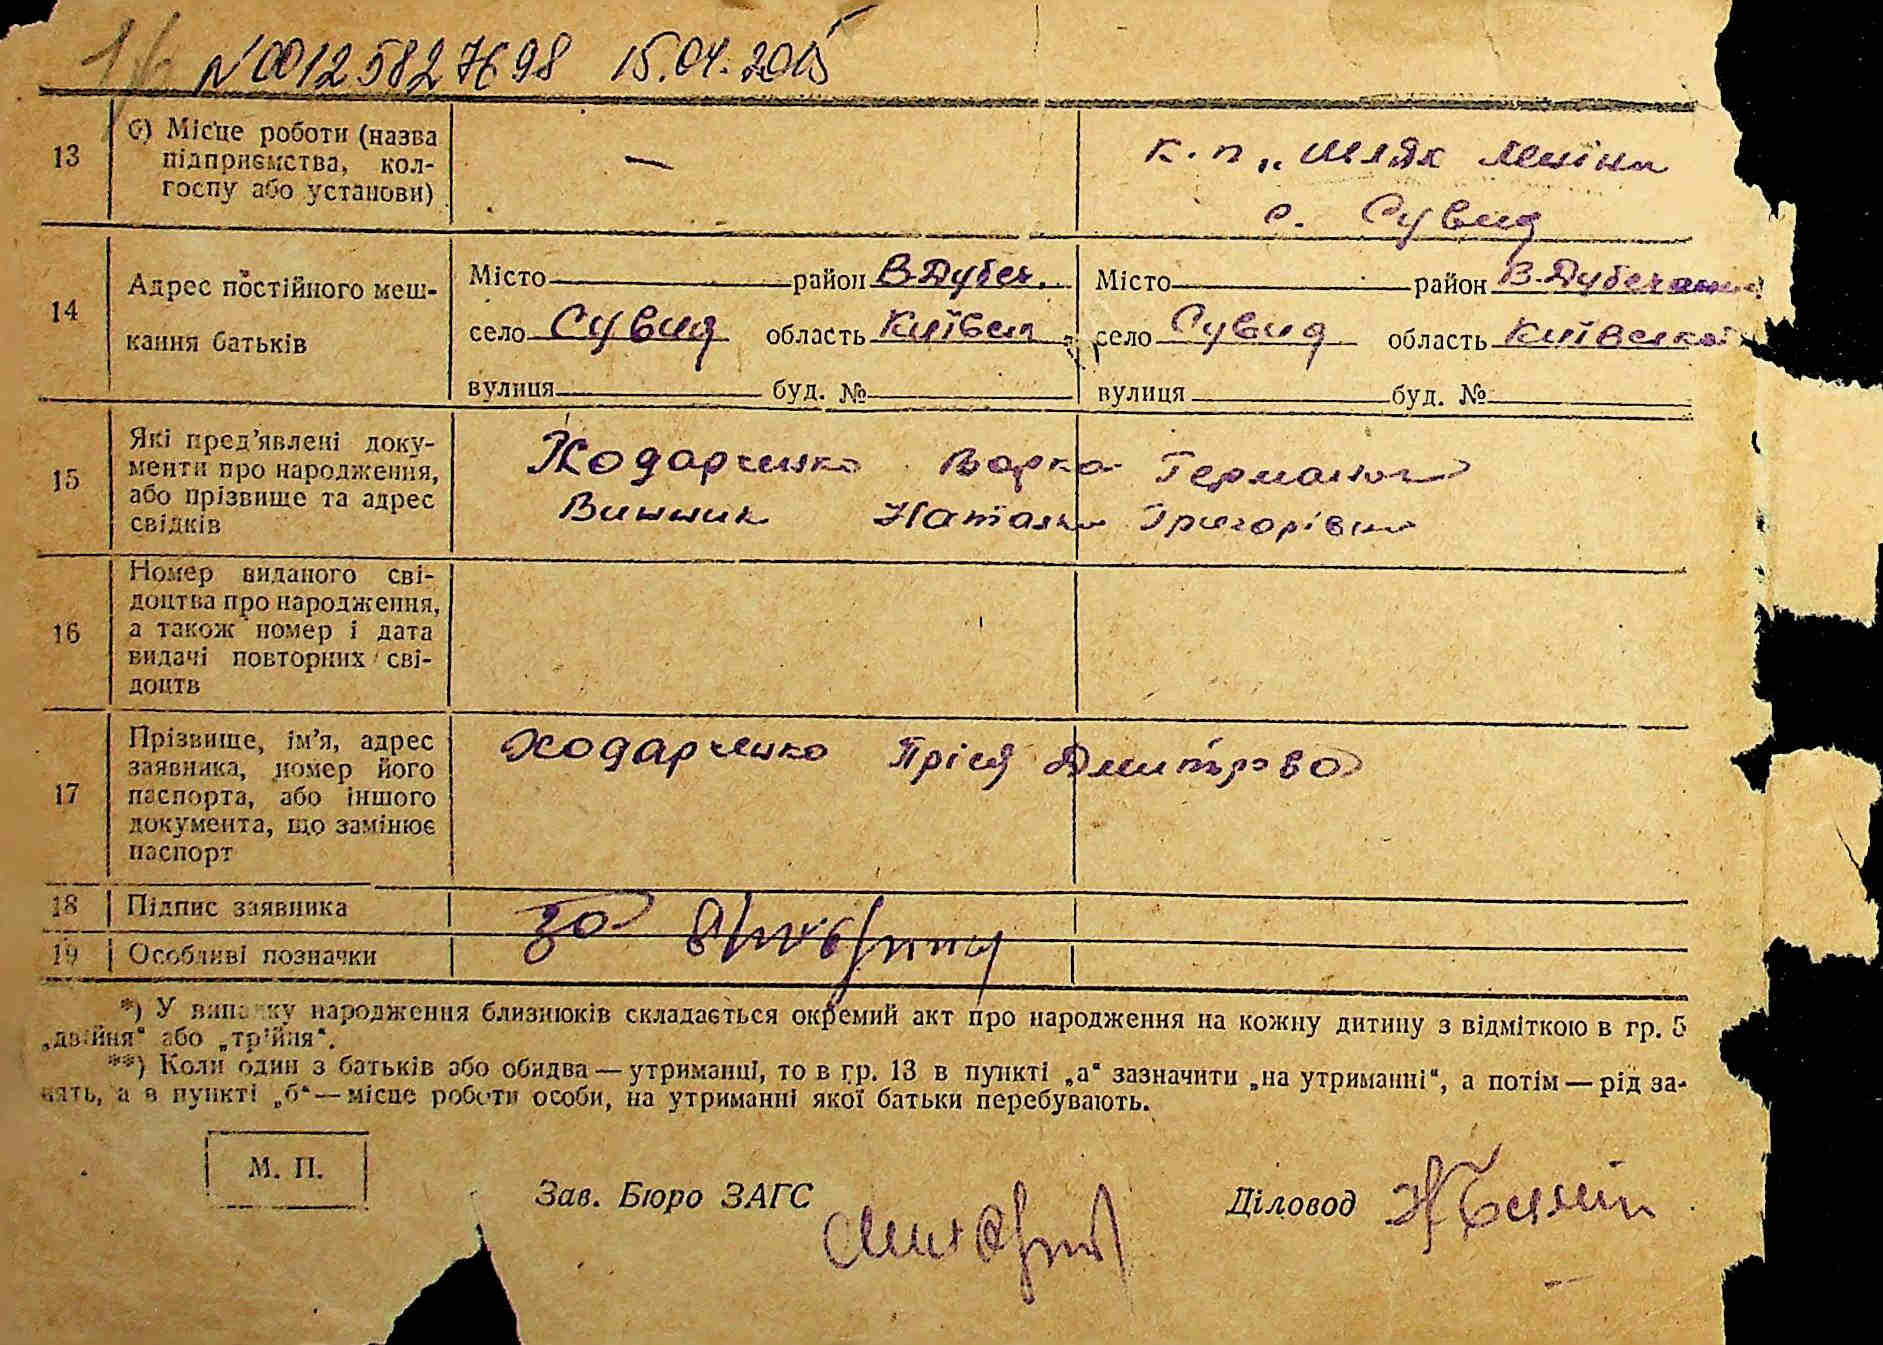 1/6 N00125827698 15.04.2015
13 б) Місце роботи (назва
підприємства, кол-
госпу або установи)
—
к. п. „Шлях Леніна
с. Сувид
14 Адрес постійного меш-
кання батьків
Місто район В-Дубеч.
село Сувид область Київськ
вулиця буд. №
Місто район В-Дубечан
село Сувид область Київської
вулиця буд. №
15 Які пред'явлені доку-
менти про народження,
або прізвище та адрес
свідків
Ходарченко Варка
Винник Наталка Григорівна
16 Номер виданого сві-
доцтва про народження,
а також номер і дата
видачі повторних сві-
доцтв
17 Прізвище, ім'я, адрес
заявника, номер його
паспорта, або іншого
документа, що замінює
паспорт
Ходарченко Пріся Дмитрова
18 Підпис заявника
за
19 Особливі позначки
*) У випадку народження близнюків складається окремий акт про народження на кожну дитину з відміткою в гр. 5
„двійня“ або „трійня“.
**) Коли один з батьків або обидва — утриманці, то в гр. 13 в пункті „а“ зазначити „на утриманні“, а потім — рід за-
нять, а в пункті „б“ — місце роботи особи, на утриманні якої батьки перебувають.
М. П.
Зав. Бюро ЗАГС
Діловод